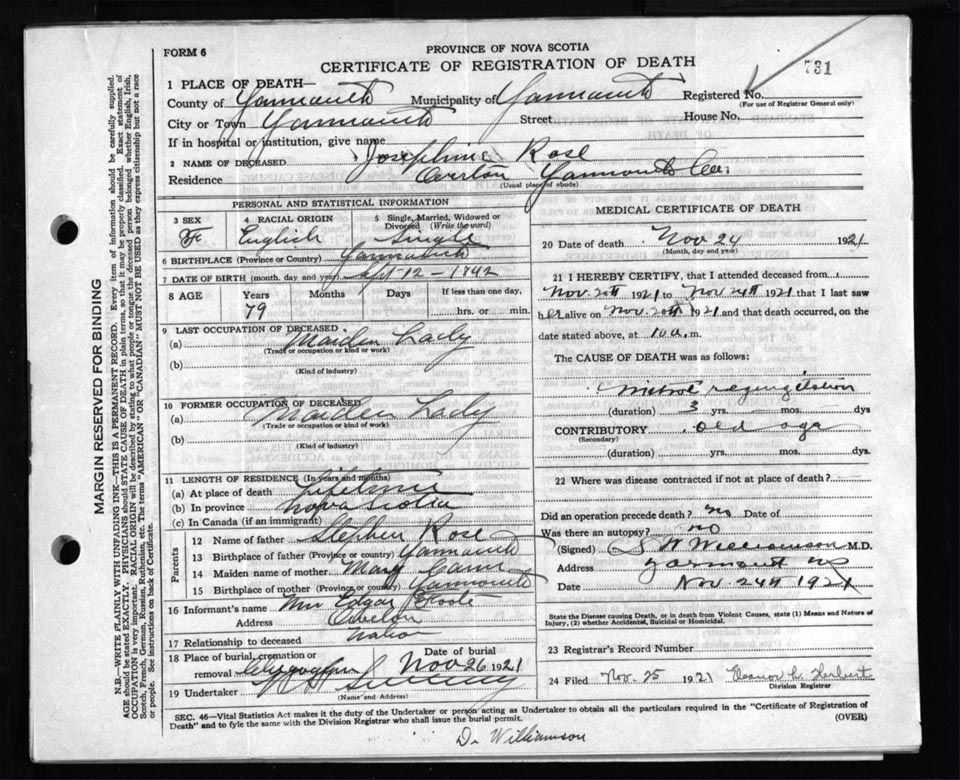 FORM 6
PROVINCE OF NOVA SCOTIA
CERTIFICATE OF REGISTRATION OF DEATH
731
1 PLACE OF DEATH—
County of Yarmouth Municipality of Yarmouth Registered No.
(For use of Registrar General only)
City or Town Yarmouth Street House No.
If in hospital or institution, give name
2 NAME OF DECEASED Josephine Rose
Residence Overton Yarmouth Co.
(Usual place of abode)
PERSONAL AND STATISTICAL INFORMATION
3 SEX F
4 RACIAL ORIGIN English
5 Single, Married, Widowed or Divorced (Write the word) Single
6 BIRTHPLACE (Province or Country) Yarmouth
7 DATE OF BIRTH (month, day and year) Sept-12-1842
8 AGE Years Months Days If less than one day,
79 hrs. or min.
9 LAST OCCUPATION OF DECEASED
(a) Maiden Lady
(Trade or occupation or kind or work)
(b)
(Kind of industry)
10 FORMER OCCUPATION OF DECEASED
(a) Maiden Lady
(Trade or occupation or kind or work)
(b)
(Kind of industry)
11 LENGTH OF RESIDENCE (In years and months)
(a) At place of death Lifetime
(b) In province Nova Scotia
(c) In Canada (if an immigrant)
Parents
12 Name of father Stephen Rose
13 Birthplace of father (Province or country) Yarmouth
14 Maiden name of mother Mary
15 Birthplace of mother (Province or country) Yarmouth
16 Informant's name Edgar
Address
17 Relationship to deceased
18 Place of burial, cremation or removal
Date of burial Nov 26 1921
19 Undertaker Sweeny
(Name and Address)
MEDICAL CERTIFICATE OF DEATH
20 Date of death Nov 24 1921
(Month, day and year)
21 I HEREBY CERTIFY, that I attended deceased from
Nov. 20th 1921 to Nov 24th 1921 that I last saw
her alive on Nov. 20th 1921 and that death occurred, on the
date stated above, at 10 a. m.
The CAUSE OF DEATH was as follows:
Mitral regurgitation
(duration) 3 yrs. mos. dys
CONTRIBUTORY old age
(Secondary)
(duration) yrs. mos. dys.
22 Where was disease contracted if not at place of death?
Did an operation precede death? no Date of
Was there an autopsy? no
(Signed) Williamson M.D.
Address Yarmouth NS
Date Nov. 24th 1921
State the Disease causing Death, or in death from Violent Causes, state (1) Means and Nature of
Injury, (2) whether Accidental, Suicidal or Homicidal.
23 Registrar's Record Number
24 Filed Nov. 25 1921 Eleanor L. Herbert
Division Registrar
SEC. 46—Vital Statistics Act makes it the duty of the Undertaker or person acting as Undertaker to obtain all the particulars required in the "Certificate of Registration of
Death" and to fyle the same with the Division Registrar who shall issue the burial permit.
(OVER)
Dr Williamson
MARGIN RESERVED FOR BINDING
N.B—WRITE PLAINLY, WITH UNFADING INK—THIS IS A PERMANENT RECORD. Every item of Information should be carefully supplied.
AGE should be stated EXACTLY. PHYSICIANS should STATE CAUSE OF DEATH in plain terms, so that it may be properly classified. Exact statement of
OCCUPATION is very important. RACIAL ORIGIN will be described by stating to what people or tongue the deceased person belonged whether English, Irish,
Scotch, French, German, Russian, Ruthenian, etc. The terms "AMERICAN" OR "CANADIAN" MUST NOT BE USED as they express citizenship but not a race
or people. See instructions on back of Certificate.